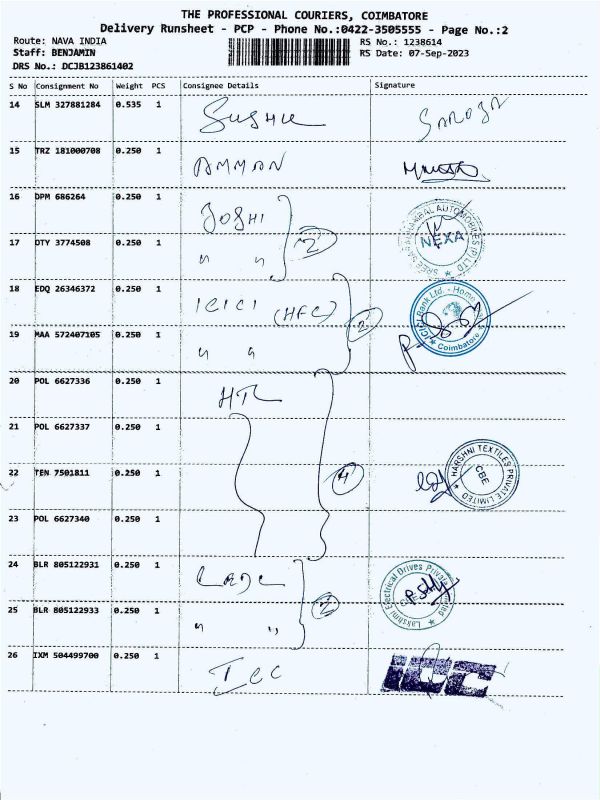 THE PROFESSIONAL COURIERS, COIMBATORE
Delivery Runsheet - PCP - Phone No.:0422-3505555 - Page No.:2
Route: NAVA INDIA
RS No.: 1238614
Staff: BENJAMIN
RS Date: 07-Sep-2023
DRS No.: DCJB123861402
S No Consignment No Weight PCS Consignee Details Signature
14 SLM 327881284 0.535 1 SAROJA
15 TRZ 181000708 0.250 1 AMMAN
16 DPM 686264 0.250 1 JOSHI
2
NEXA
17 DTY 3774508 0.250 1 " "
18 EDQ 26346372 0.250 1 ICICI (HFC)
2
ICICI Bank Ltd. - Home
Coimbatore
19 MAA 572407105 0.250 1 " "
20 POL 6627336 0.250 1 HTL
21 POL 6627337 0.250 1
22 TEN 7501811 0.250 1
4
HARSHNI TEXTILES PRIVATE LIMITED
CBE
23 POL 6627340 0.250 1
24 BLR 805122931 0.250 1
2
Lakshmi Electrical Drives Private Limited
25 BLR 805122933 0.250 1 " "
26 IXM 504499700 0.250 1 ICC
icc